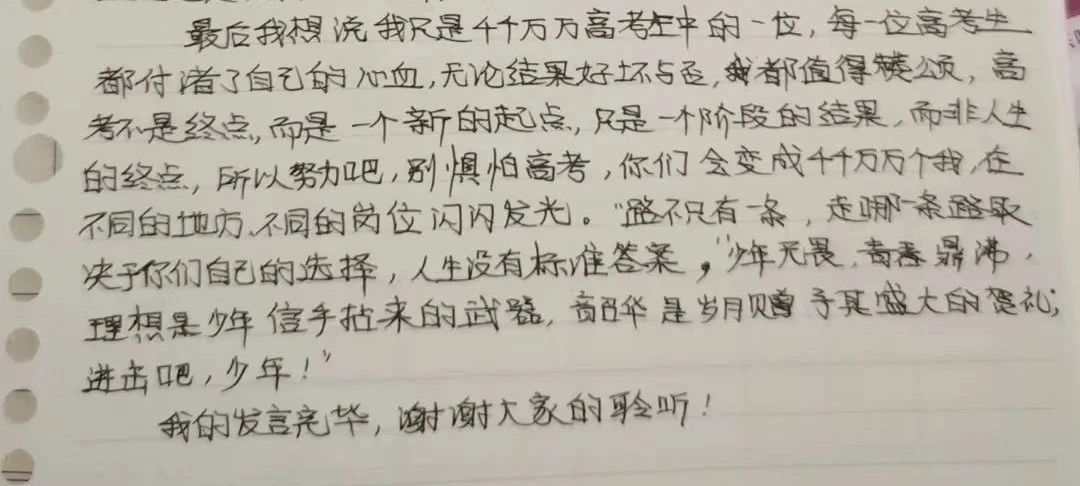 最后我想说我只是千千万万高考生中的一位，每一位高考生
都付诸了自己的心血，无论结果好坏与否，都值得赞颂，高
考不是终点，而是一个新的起点，只是一个阶段的结果，而非人生
的终点，所以努力吧，别惧怕高考，你们会变成千千万万个我，在
不同的地方、不同的岗位闪闪发光。“路不只有一条，走哪一条路取
决于你们自己的选择，人生没有标准答案，”“少年无畏，青春鼎沸，
理想是少年信手拈来的武器，韶华是岁月赠予其盛大的贺礼；
进击吧，少年！”
我的发言完毕，谢谢大家的聆听！